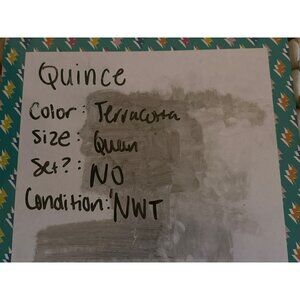 Quince
Color: Terracotta
Size: Queen
Set?: NO
Condition: NWT